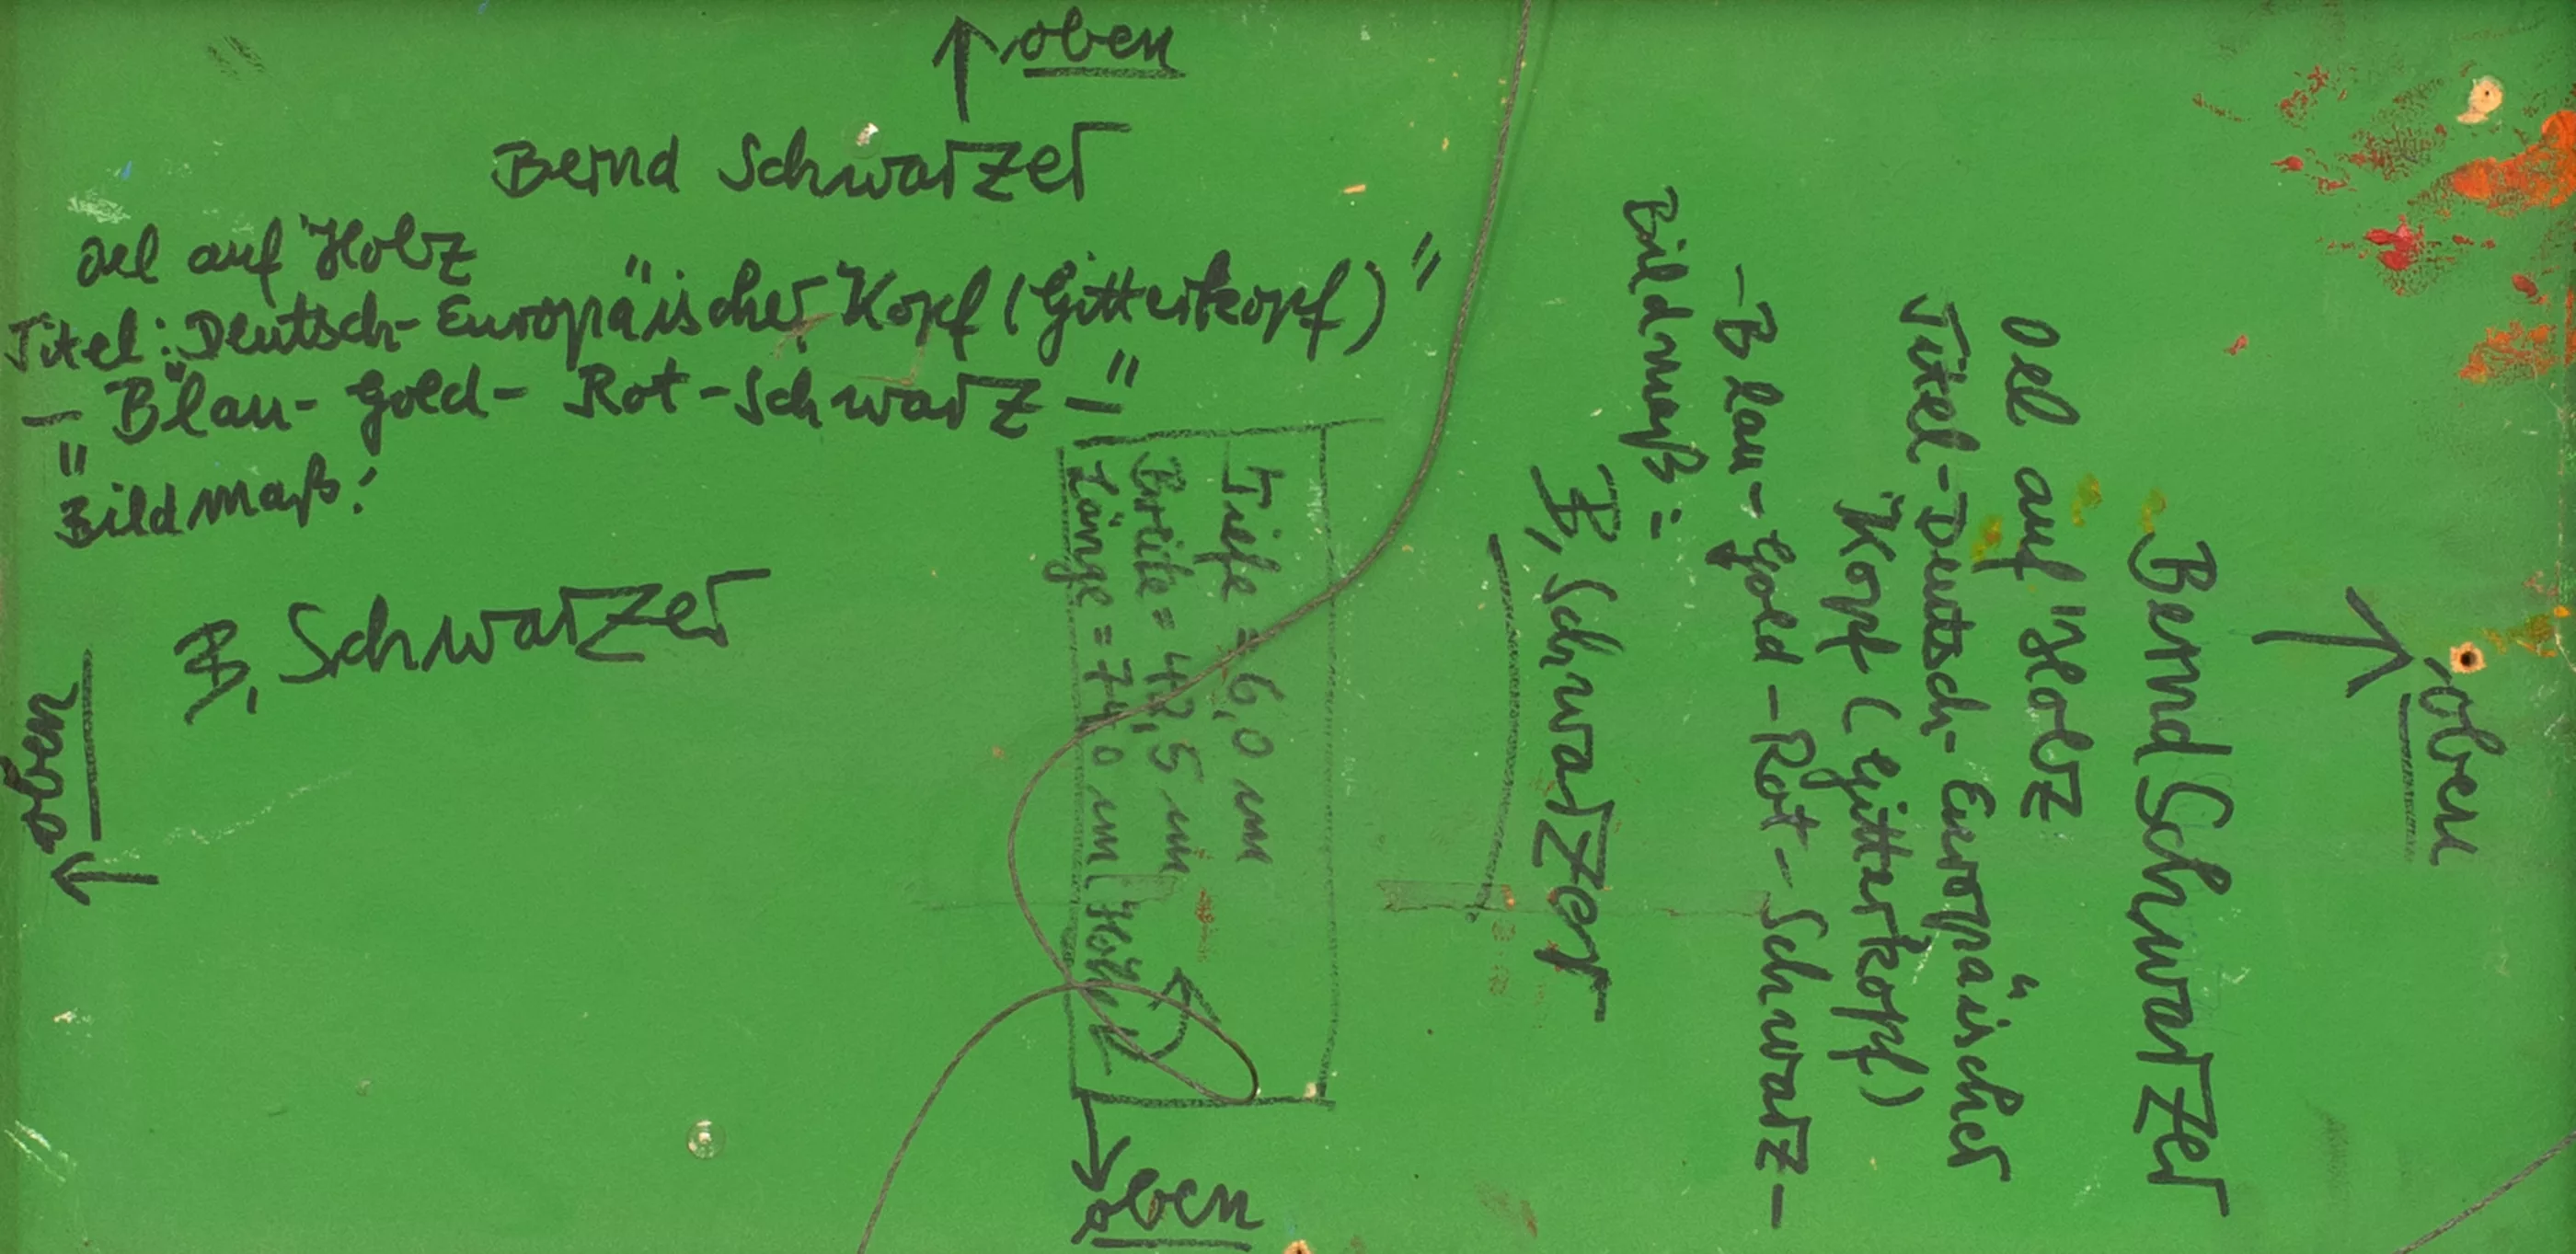 oben
Bernd Schwarzer
Oel auf Holz
Titel: "Deutsch-Europäischer Kopf (Gitterkopf)"
"- Blau- Gold- Rot-Schwarz -"
Bildmaß:
B. Schwarzer
oben
Tiefe = 6,0 cm
Breite = 42,5 cm
Länge = 74,0 cm
oben
oben
Bernd Schwarzer
Oel auf Holz
Titel-Deutsch-Europäischer
Kopf (Gitterkopf)
-Blau-Gold-Rot-Schwarz-
Bildmaß:
B. Schwarzer